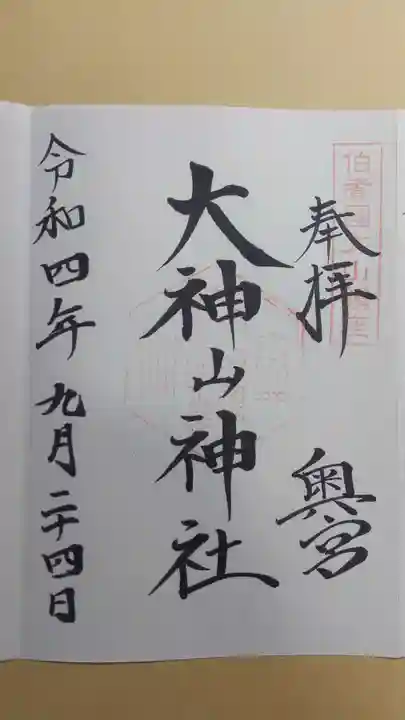 奉拝
奥宮
大神山神社
令和四年九月二十四日